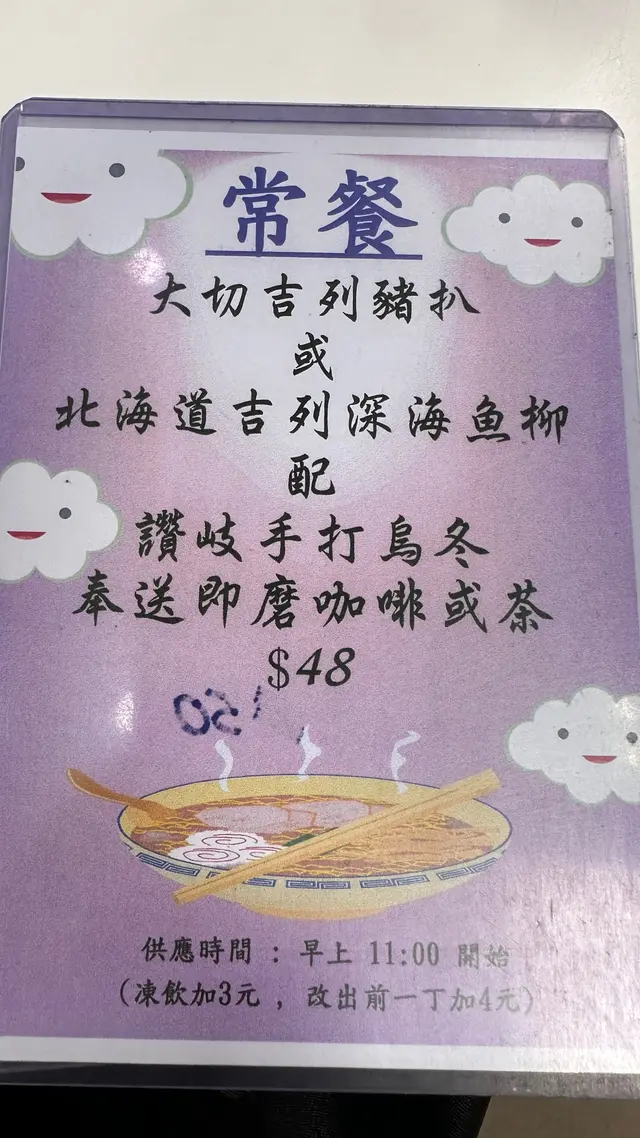 常餐
大切吉列豬扒
或
北海道吉列深海魚柳
配
讚岐手打烏冬
奉送即磨咖啡或茶
$48
供應時間 : 早上 11:00 開始
(凍飲加3元 , 改出前一丁加4元)